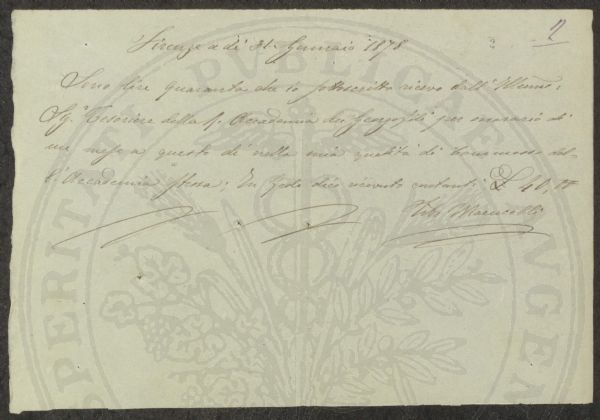 2
Firenze a dì 31 Gennaio 1878
Sono lire quaranta che io sottoscritto ricevo dall' Illmo:
Sig. Tesoriere della R. Accademia dei Georgofili per onorario di
un mese a questo dì nella mia qualità di Commesso del-
l'Accademia stessa; In fede dico ricevuto contanti £ 40,
PROSPERITATI PUBLICAE AUGEN